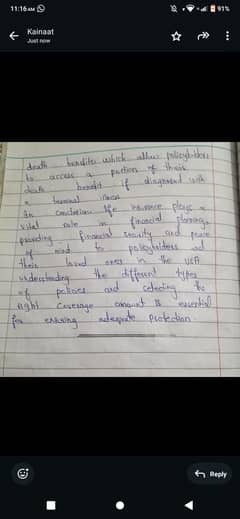 11:16 AM
91%
Kainaat
Just now
death benefits which allow policyholders
to access a portion of their
death benefit if diagnosed with
a terminal illness
In conclusion life insurance plays a
vital role in financial planning
providing financial security and peace
of mind to policyholders and
their loved ones in the USA
understanding the different types
of policies and selecting the
right coverage amount is essential
for ensuring adequate protection
Reply